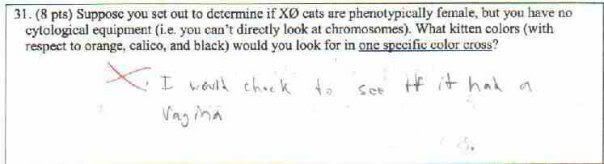 31. (8 pts) Suppose you set out to determine if XØ cats are phenotypically female, but you have no
cytological equipment (i.e. you can't directly look at chromosomes). What kitten colors (with
respect to orange, calico, and black) would you look for in one specific color cross?
I would check to see if it had a
Vagina